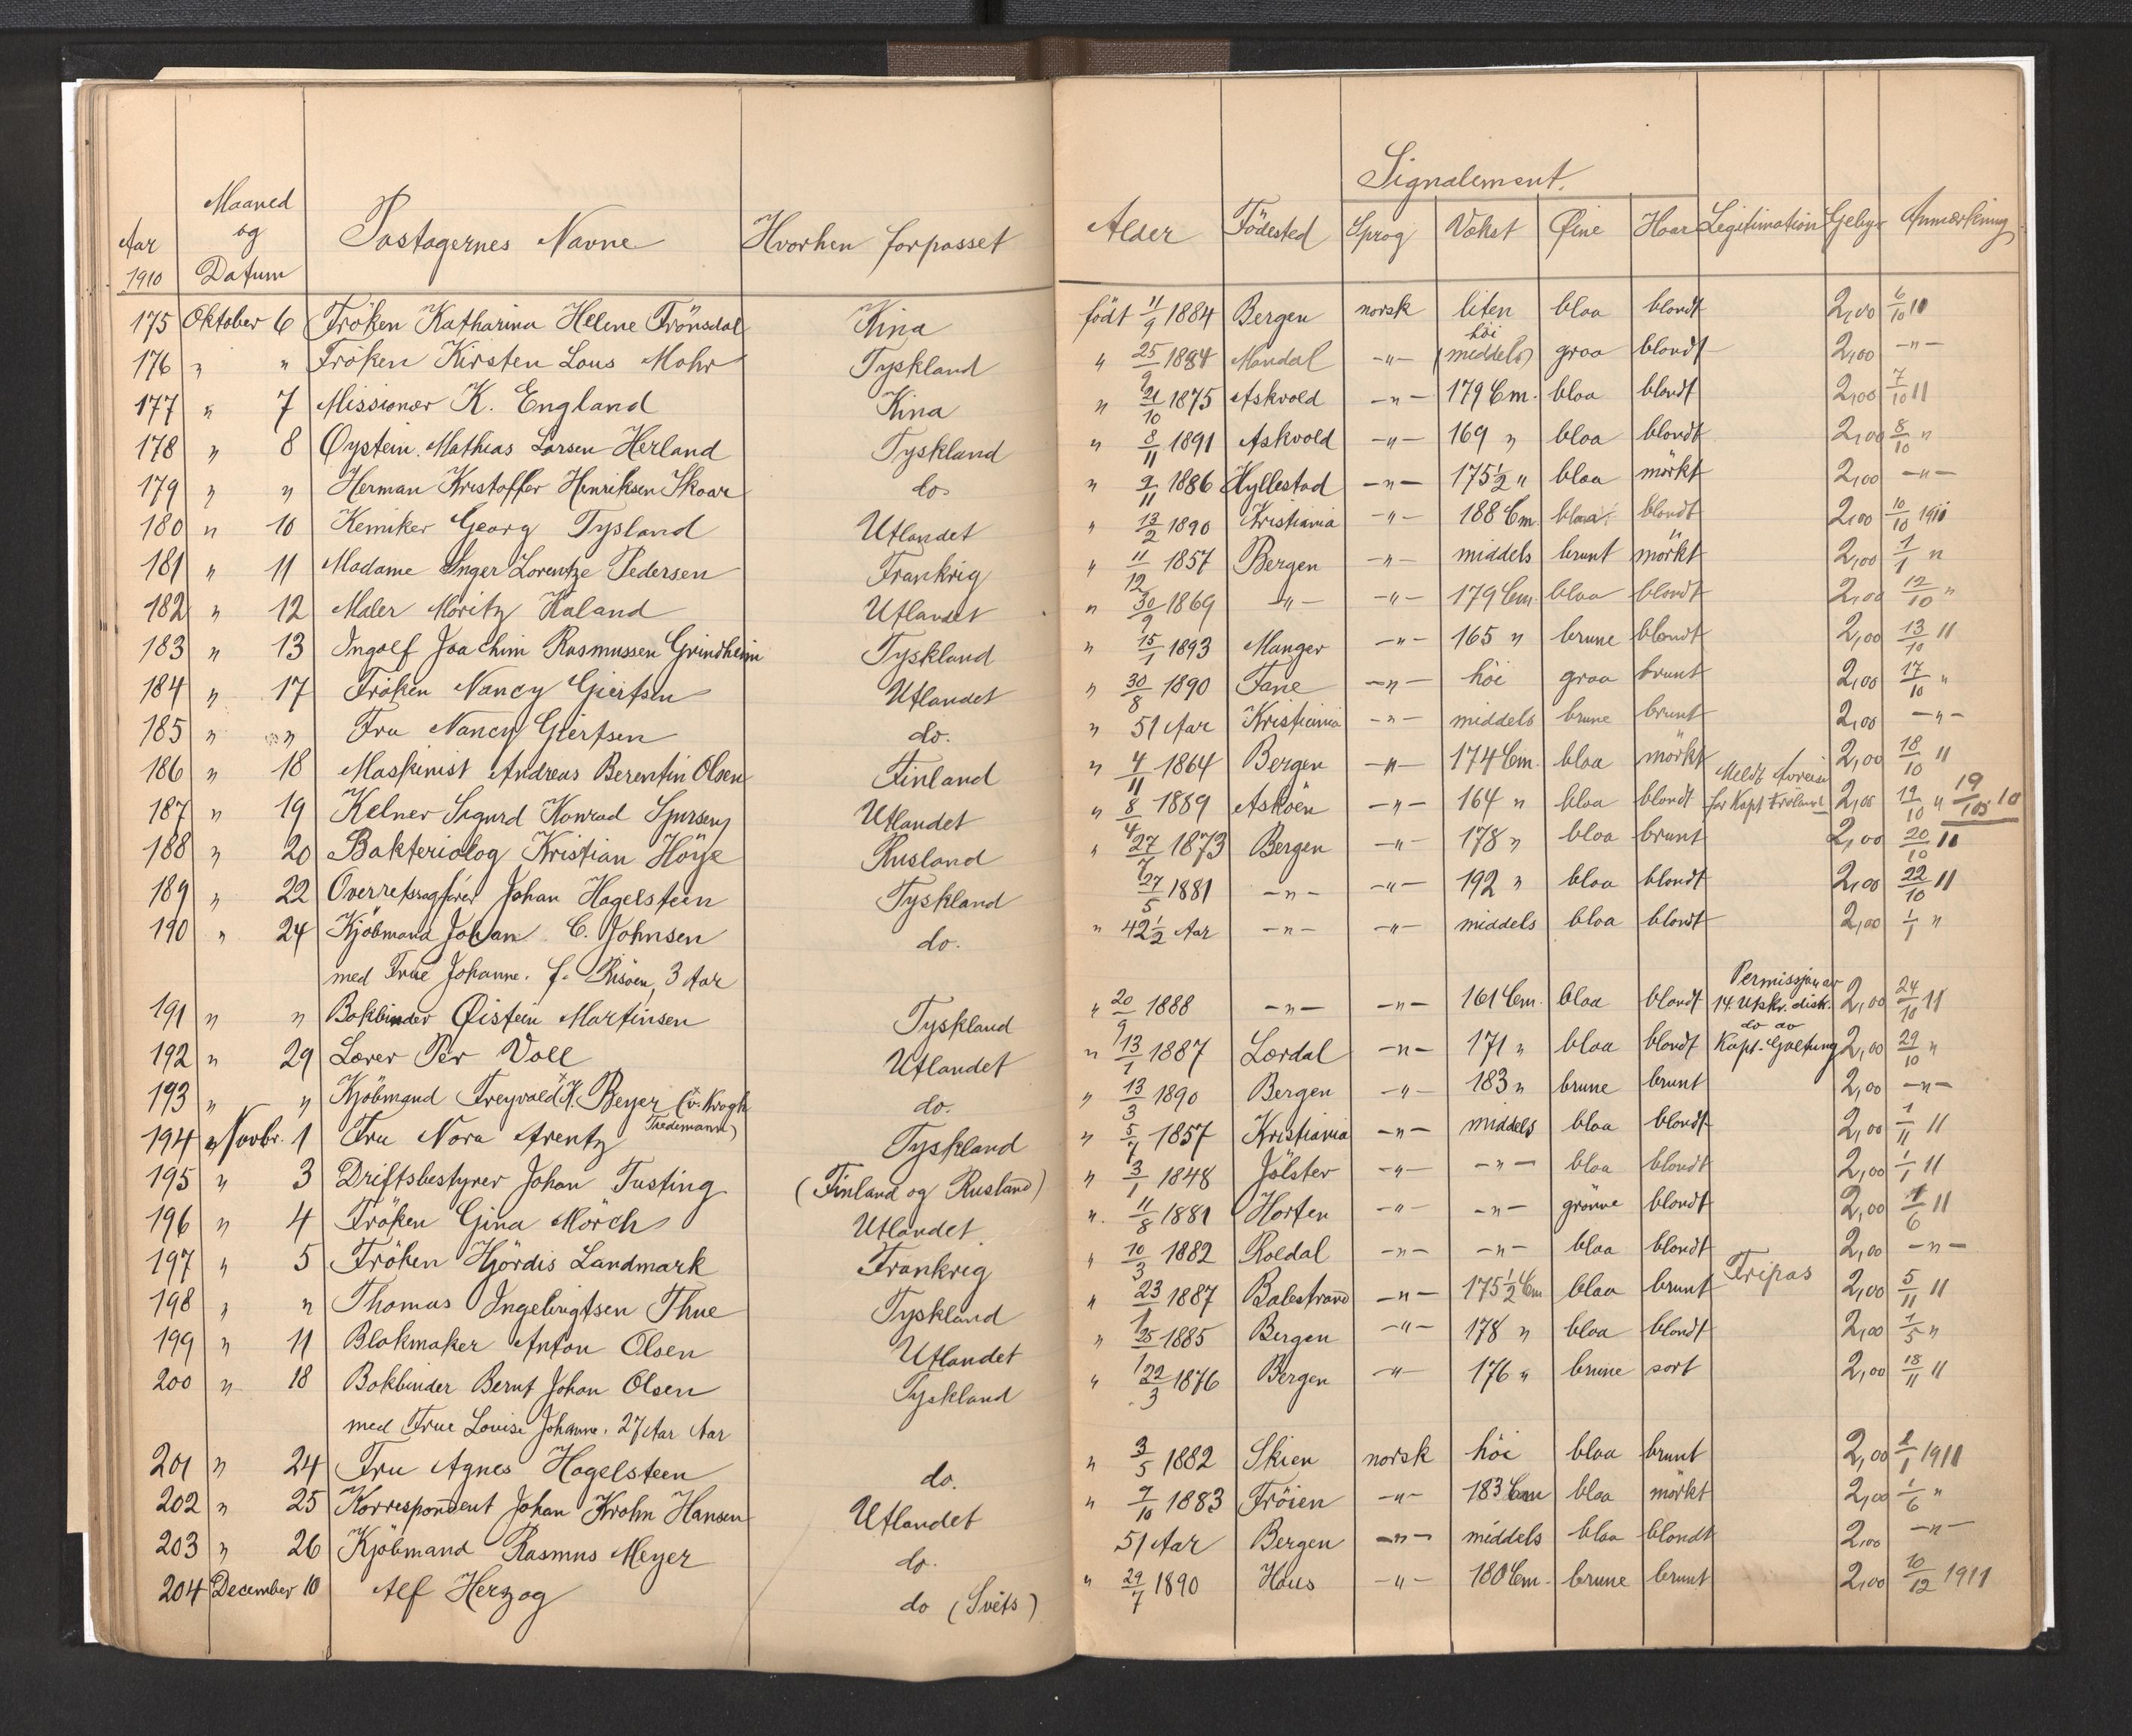 Signalement.
Aar 1910 Maaned og Datum Pastagernes Navne Hvorhen forpasset Alder Födested Sprog Vekst Øine Haar Legitimation Gebyr Anmærkning
175 Oktober 6 Fröken Katharina Helene Frönsdal Kina födt 11/9 1884 Bergen norsk liten blaa blondt 2,00 6/10 11
176 " " Fröken Kirsten Lous Mohr Tyskland " 25/9 1884 Mandal -"- höi (middels) graa blondt 2,00 -"-
177 " 7 Missionær K. England Kina " 21/10 1875 Askvold -"- 179 Cm. blaa blondt 2,00 7/10 11
178 " 8 Øystein Mathias Larsen Herland Tyskland " 8/11 1891 Askvold -"- 169 " blaa blondt 2,00 8/10 "
179 " " Herman Kristoffer Henriksen Skaar do. " 9/11 1886 Hyllestad -"- 175½ " blaa mörkt 2,00 -"-
180 " 10 Kemiker Georg Tysland Utlandet " 13/2 1890 Kristiania -"- 188 Cm. blaa blondt 2,00 10/10 1911
181 " 11 Madame Inger Lorentze Pedersen Frankrig " 11/12 1857 Bergen -"- middels brunt mörkt 2,00 1/1 "
182 " 12 Maler Moritz Kaland Utlandet " 30/9 1869 -"- -"- 179 Cm. blaa blondt 2,00 12/10 "
183 " 13 Ingolf Joachim Rasmussen Grindheim Tyskland " 15/1 1893 Manger -"- 165 " brune blondt 2,00 13/10 11
184 " 17 Fröken Nancy Giertsen Utlandet " 30/8 1890 Fane -"- höi graa brunt 2,00 17/10 "
185 " " Fru Nancy Giertsen do. " 51 Aar Kristiania -"- middels brune brunt 2,00 -"-
186 " 18 Maskinist Andreas Berentin Olsen Finland " 4/11 1864 Bergen -"- 174 Cm. blaa mörkt 2,00 18/10 11
187 " 19 Kelner Sigurd Konrad Utlandet " 8/4 1889 Asköen -"- 164 " blaa blondt Meldt Avreise for Kapt. 2,00 19/10 " 19/10 10
188 " 20 Bakteriolog Kristian Höye Rusland " 27/7 1873 Bergen -"- 178 " blaa brunt 2,00 20/10 11
189 " 22 Overretssagförer Johan Hagelsteen Tyskland 27/5 1881 -"- -"- 192 " blaa blondt 2,00 22/10 11
190 " 24 Kjöbmand Johan C. Johnsen do. " 42½ Aar -"- -"- middels blaa blondt 2,00 1/1 "
med Frue Johanne. f. Risöen, 3 Aar
191 " " Bokbinder Øistein Martinsen Tyskland " 20/9 1888 -"- -"- 161 Cm. blaa blondt Permissjon av 14. Utskr. disk. 2,00 24/10 11
192 " 29 Lærer Per Voll Utlandet " 13/1 1887 Lærdal -"- 171 " blaa blondt do av Kapt. Galtung 2,00 29/10 "
193 " " Kjöbmand Freyvald K. Beyer (v. Krogh Tiedemann) do. " 13/3 1890 Bergen -"- 183 " brune brunt 2,00 -"-
194 " Novbr. 1 Fru Nora Arentz Tyskland " 5/7 1857 Kristiania -"- middels blaa blondt 2,00 1/11 11
195 " 3 Driftsbestyrer Johan Tusting (Finland og Rusland) " 3/1 1848 Jölster -"- -"- blaa blondt 2,00 1/1 11
196 " 4 Fröken Gina Mörch Utlandet. " 11/8 1881 Horten -"- -"- grönne blondt 2,00 1/6 11
197 " 5 Fröken Hjördis Landmark Frankrig " 10/3 1882 Roldal -"- -"- blaa blondt 2,00 -"-
198 " " Thomas Ingebrigtsen Thue Tyskland " 23/1 1887 Balestrand -"- 175½ Cm blaa brunt Fripas 2,00 5/11 11
199 " 11 Blokmaker Anton Olsen Utlandet " 25/1 1885 Bergen -"- 178 " blaa blondt 2,00 1/5 "
200 " 18 Bokbinder Bernt Johan Olsen Tyskland " 22/3 1876 Bergen -"- 176 " brune sort 2,00 18/11 11
med Frue Lovise Johanne. 27 Aar Aar
201 " 24 Fru Agnes Hagelsteen do. " 3/5 1882 Skien norsk höi blaa brunt 2,00 2/1 1911
202 " 25 Korrespondent Johan Krohn Hansen Utlandet " 7/10 1883 Fröien -"- 183 Cm blaa mörkt 2,00 1/6 "
203 " 26 Kjöbmand Rasmus Meyer do. 51 Aar Bergen -"- middels blaa blondt 2,00 -"-
204 December 10 Alf Herzog do (Svets) " 29/7 1890 Haus -"- 180 Cm. brune brunt 2,00 10/12 1911